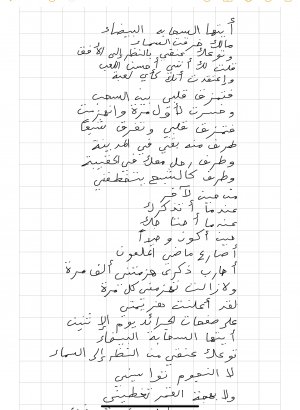 أيتها السحابة البيضاء
مالك خرقت السماء
وتوعك عنقي بالنظر إلى الأفق
قلت لك أنني أحسن اللعب
واعتقدت أنك كأي لعبة
فتمزق قلبي بين السحب
وخسرت لأول مرة وانهزمت
فتمزق قلبي وتفرق شيعا
طرف منه بقي في المدينة
وطرف رحل معك في الحقيبة
وطرف كالشبح يتقطفني
من حين لآخر
عندما أتذكرك
عندما أحتاجك
حين أكون وحيدا
أصارع ماضي الملعون
أحارب ذكرى هزمتني ألف مرة
ولازالت تهزمني كل مرة
لقد أعلنت هزيمتي
على صفحات الجرائد يوم الإثنين
أيتها السحابة البيضاء
توعك عنقي من النظر إلى السماء
لا النجوم تواسيني
ولا القمر